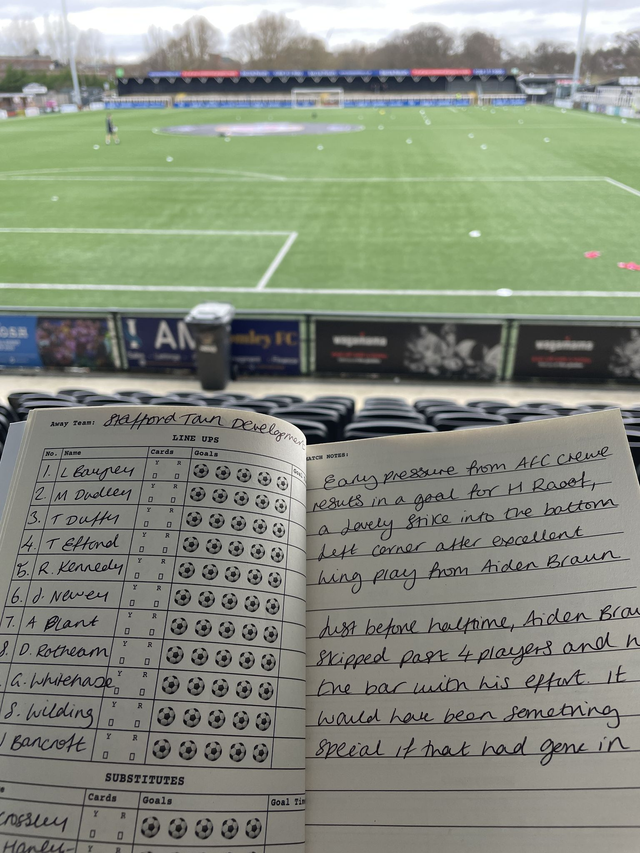 AM
mley FC
wagamama
wagamama
Away Team: Stafford Town Developmen
LINE UPS
No. Name Cards Goals
Y R
1. L Bayney
2. M Dudley
3. T Duffy
4. T Effond
5. R. Kennedy
6. J. Newey
7. A Plant
8. D. Rotheam
. G. Whitehase
. S. Wilding
Bancroft
SUBSTITUTES
Cards Goals Goal Tim
Y R
Crossley
Hanley-
MATCH NOTES:
Early pressure from AFC Crewe
results in a goal for H Raoof,
a lovely strike into the bottom
left corner after excellent
wing play from Aiden Braun
Just before halftime, Aiden Brau
skipped past 4 players and h
the bar with his effort. It
would have been something
special if that had gone in